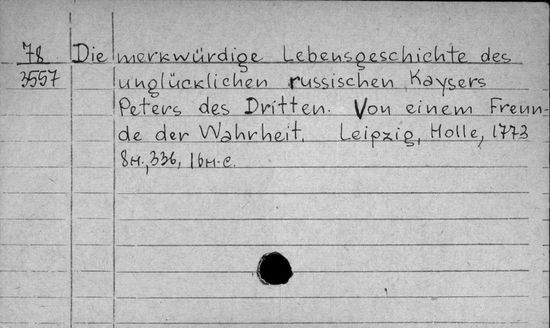 78 Die merkwürdige Lebensgeschichte des
3557 unglücklichen russischen Kaysers
Peters des Dritten. Von einem Freun-
de der Wahrheit. Leipzig, Holle, 1773
8н., 336, 16н.с.